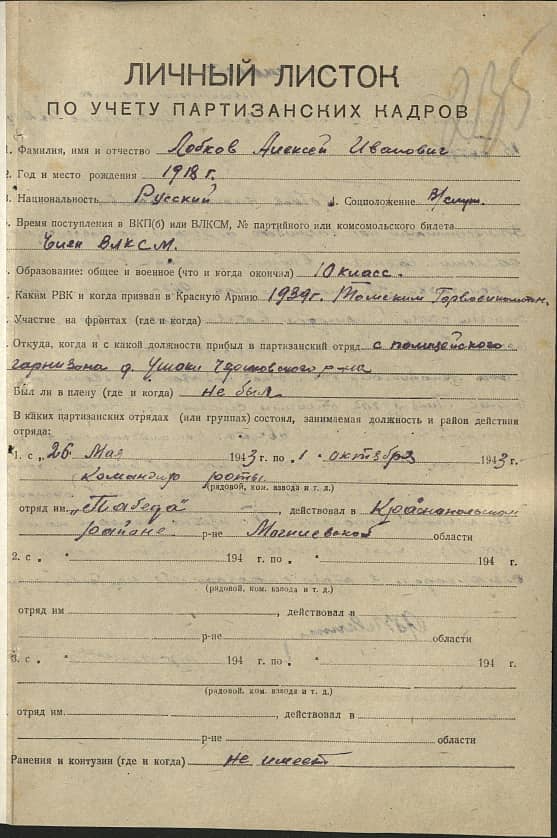 235
ЛИЧНЫЙ ЛИСТОК
ПО УЧЕТУ ПАРТИЗАНСКИХ КАДРОВ
1. Фамилия, имя и отчество Лобков Алексей Иванович
2. Год и место рождения 1918 г.
3. Национальность Русский 4. Соцположение В/служ.
Время поступления в ВКП(б) или ВЛКСМ, № партийного или комсомольского билета
Член ВЛКСМ.
Образование: общее и военное (что и когда окончил) 10 класс.
Каким РВК и когда призван в Красную Армию 1939г. Томским Горвоенкоматом,
Участие на фронтах (где и когда)
Откуда, когда и с какой должности прибыл в партизанский отряд с полицейского
гарнизона д. Ушаки Чериковского р-на
Был ли в плену (где и когда) не был
В каких партизанских отрядах (или группах) состоял, занимаемая должность и район действия
отряда:
1. с „26 Мая 1943 г. по „1 " октября 1943 г.
командир роты
(рядовой, ком. взвода и т. д.)
отряд им. „Победа" , действовал в Краснапольском
районе р-не Могилевской области
2. с „ " 194 г. по „ " 194 г.
(рядовой, ком. взвода и т. д.)
отряд им , действовал в
р-не области
3. с „ " 194 г. по „ " 194 г.
(рядовой, ком. взвода и т. д.)
отряд им. , действовал в
р-не области
Ранения и контузии (где и когда) не имеет